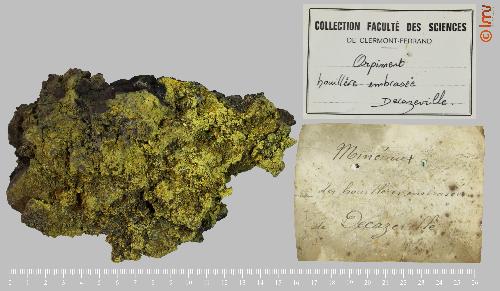 COLLECTION FACULTÉ DES SCIENCES
DE CLERMONT-FERRAND
Orpiment
houillère embrasée
Decazeville
Minéraux
des houillères embrasées
de Decazeville
© lmv
0 1 2 3 4 5 6 7 8 9 10 11 12 13 14 15 16 17 18 19 20 21 22 23 24 25 26